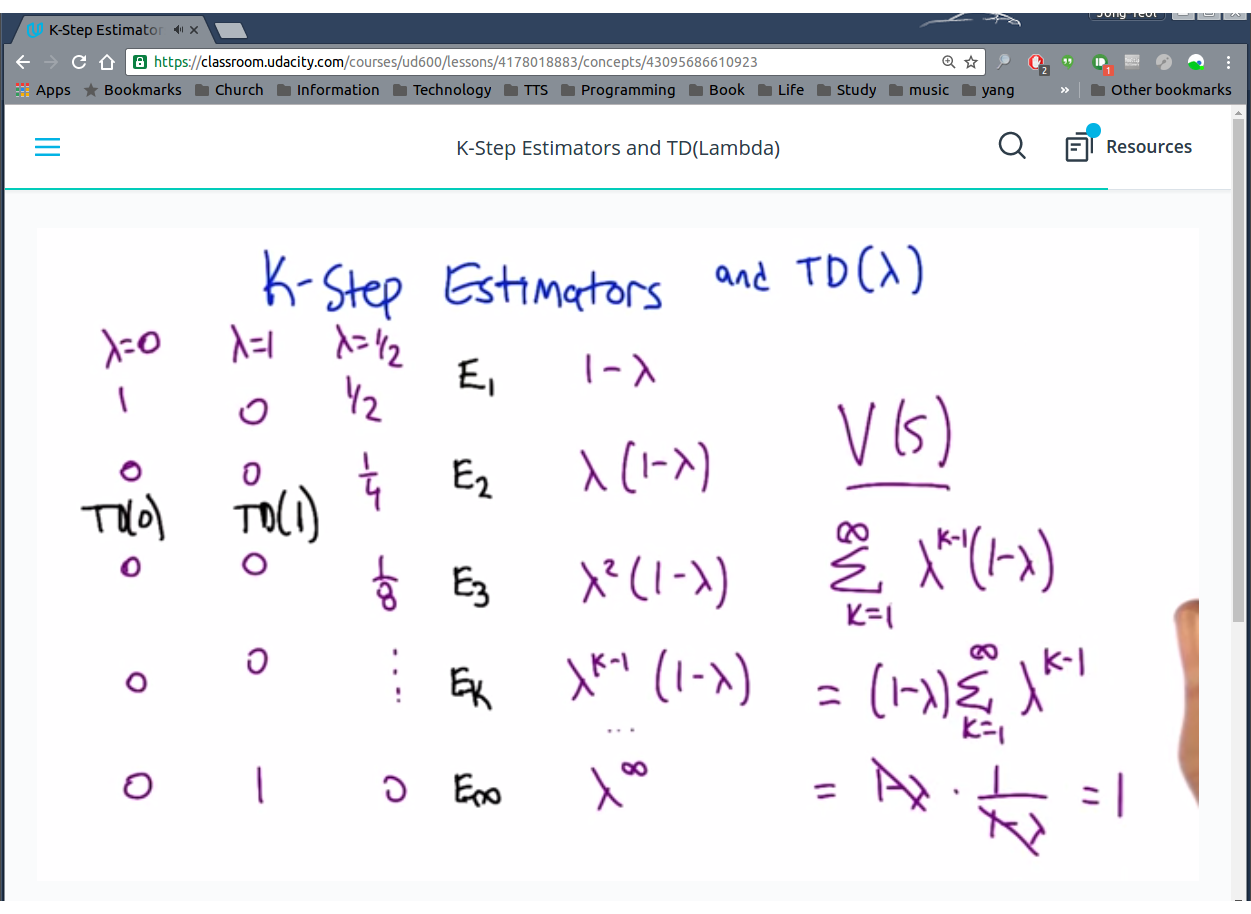 K-Step Estimator
Jong Yeol
https://classroom.udacity.com/courses/ud600/lessons/4178018883/concepts/43095686610923
2
1
Apps Bookmarks Church Information Technology TTS Programming Book Life Study music yang » Other bookmarks
K-Step Estimators and TD(Lambda)
Resources
K-Step Estimators and TD(λ)
λ=0 λ=1 λ=1/2
1 0 1/2 E₁ 1-λ
V(s)
0 0 1/4 E₂ λ(1-λ)
TD(0) TD(1)
0 0 1/8 E₃ λ²(1-λ)
∞ Σ K=1 λᴷ⁻¹(1-λ)
0 0 ⋮ Eₖ λᴷ⁻¹(1-λ)
= (1-λ) ∞ Σ K=1 λᴷ⁻¹
...
0 1 0 E∞ λ^∞
= 1-λ · 1/(1-λ) = 1